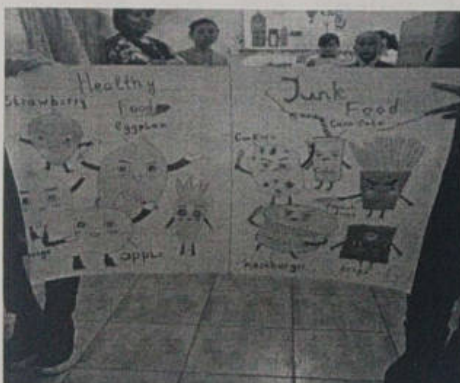 Healthy
Food
Strawberry
eggplan
apple
Junk
Food
Coca Cola
Cookies
Hamburger